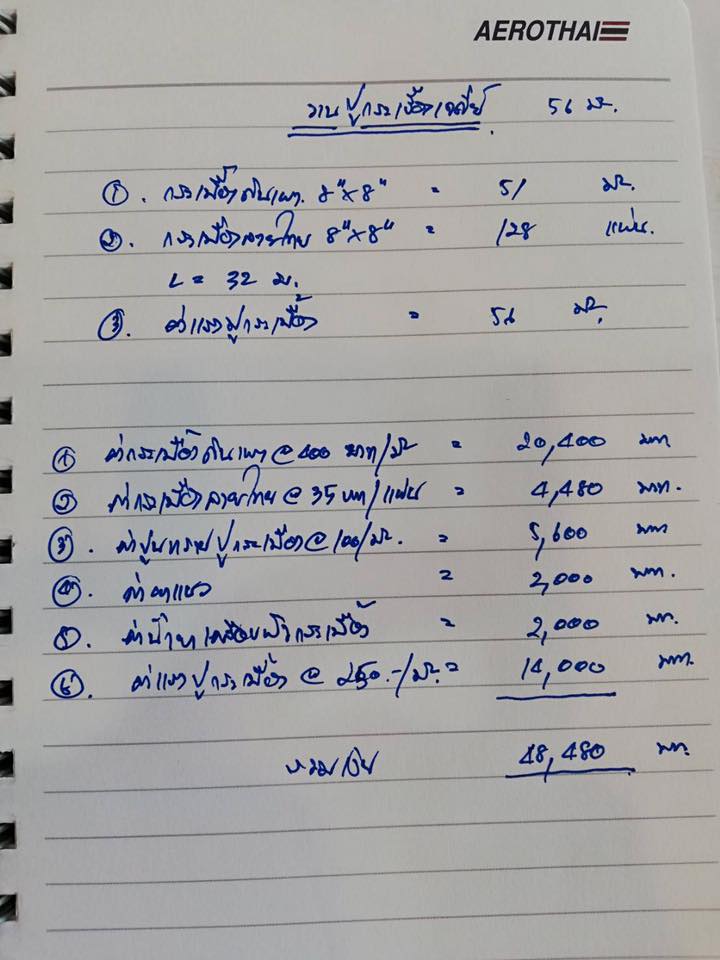 AEROTHAI
งานปูกระเบื้องเจดีย์ 56 ม².
①. กระเบื้องดินเผา 8"x8" = 51 ม².
②. กระเบื้องลายไทย 8"x8" = 128 แผ่น.
L = 32 ม.
③. ค่าแรงปูกระเบื้อง = 56 ม².
① ค่ากระเบื้องดินเผา @ 400 บาท/ม² = 20,400 บาท
② ค่ากระเบื้องลายไทย @ 35 บาท/แผ่น = 4,480 บาท.
③. ค่าปูนทรายปูกระเบื้อง @ 100/ม². = 5,600 บาท
④. ค่ายาแนว = 2,000 บาท.
⑤. ค่าน้ำยาเคลือบผิวกระเบื้อง = 2,000 บาท.
⑥. ค่าแรงปูกระเบื้อง @ 250.-/ม². = 14,000 บาท.
รวมเงิน 48,480 บาท.